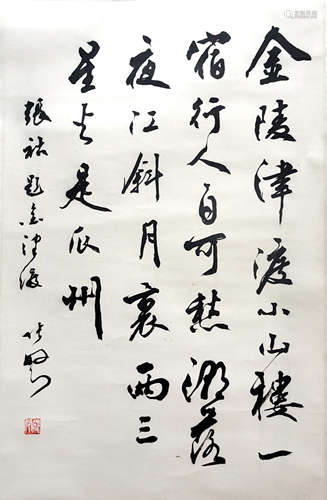 金陵津渡小山樓一
宿行人自可愁潮落
夜江斜月裏兩三
星火是瓜州
張祜题金津渡